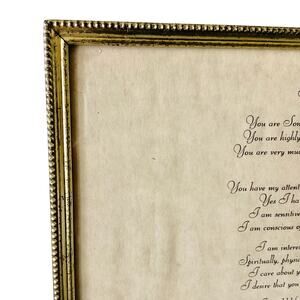 You are Son
You are highly
You are very mu
You have my attent
Yes I ha
I am sensitive
I am conscious o
I am interes
Spiritually, phys
I care about y
I desire that you